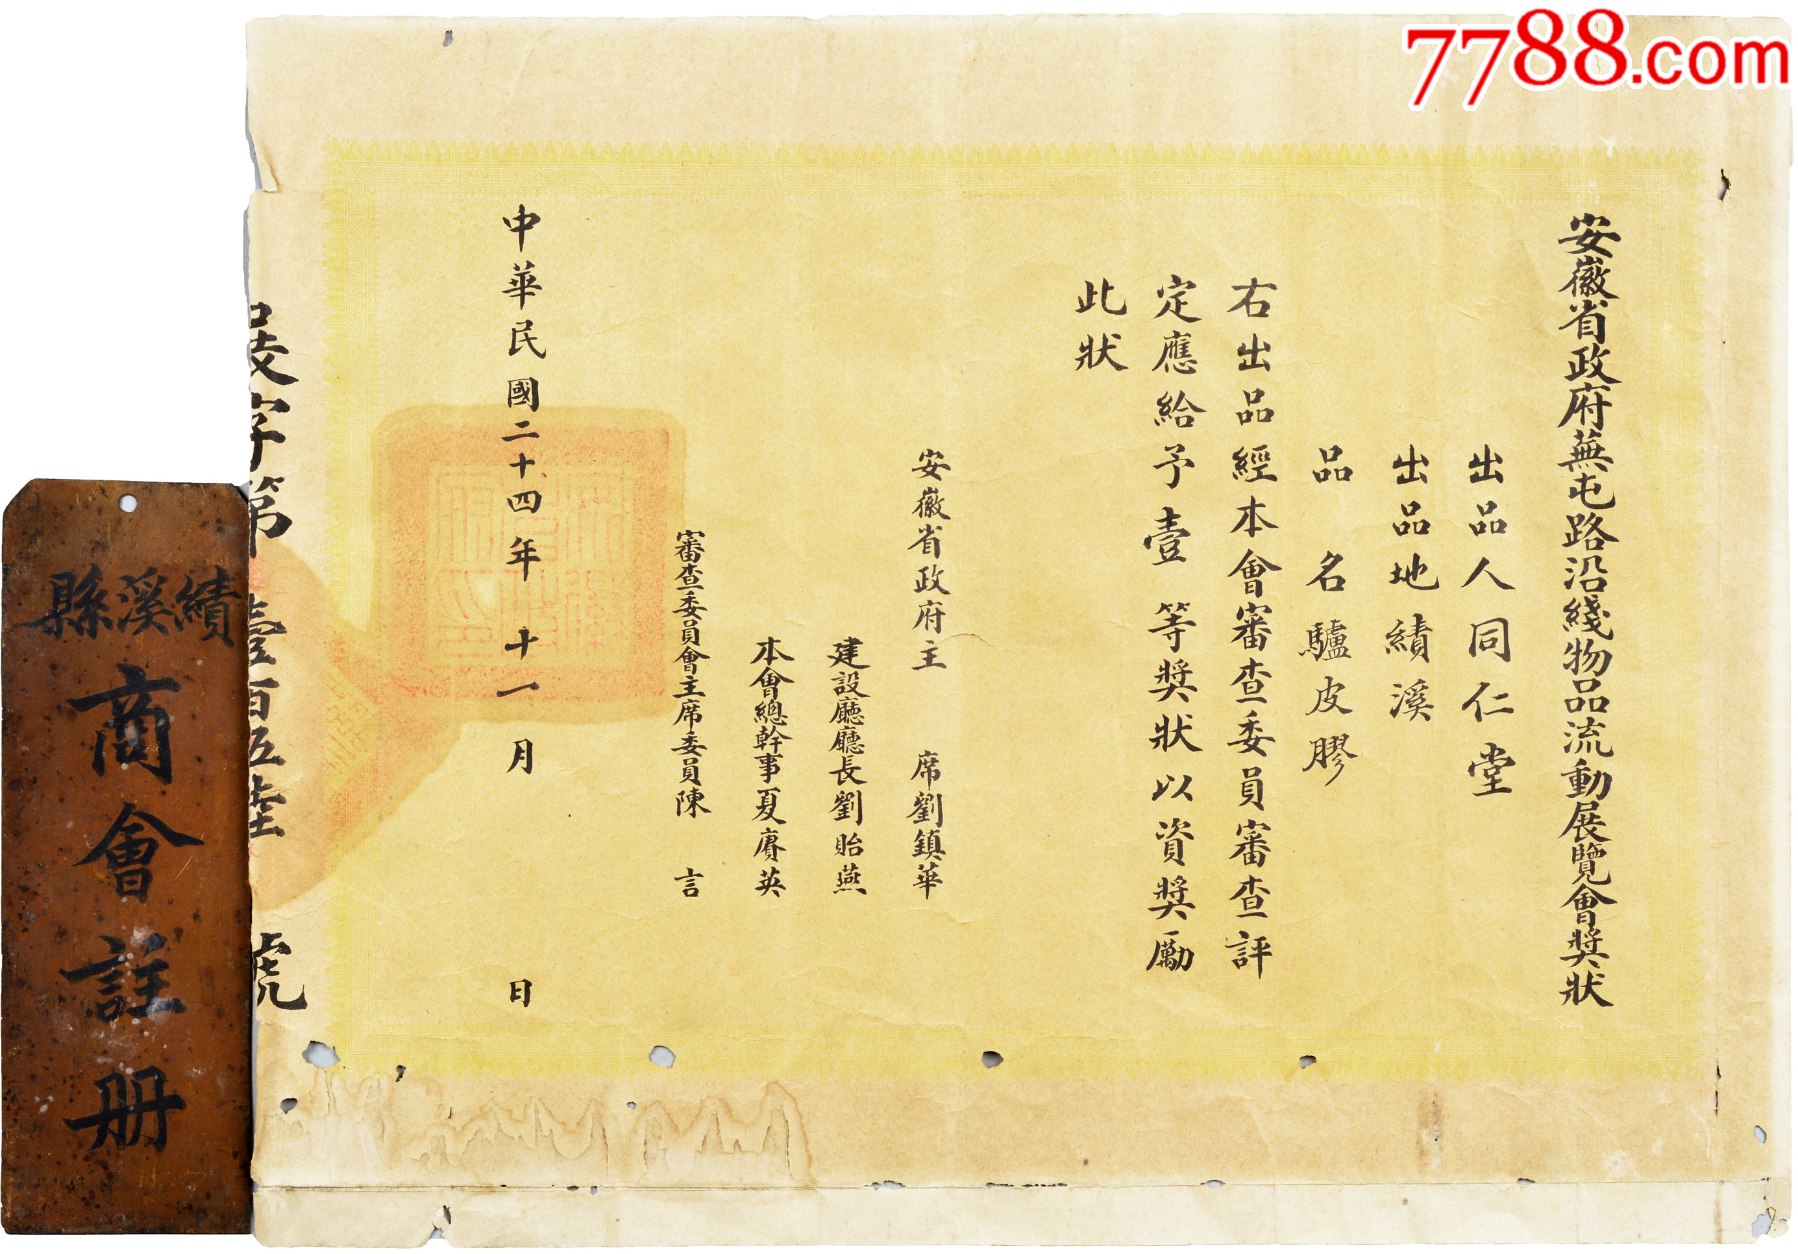 7788.com
安徽省政府蕪屯路沿綫物品流動展覽會獎狀
出品人同仁堂
出品地績溪
品名驢皮膠
右出品經本會審查委員審查評
定應給予壹等獎狀以資獎勵
此狀
安徽省政府主席劉鎮華
建設廳廳長劉貽燕
本會總幹事夏賡英
審查委員會主席委員陳言
中華民國二十四年十一月日
展字第壹百伍陸號
績溪縣
商會註册